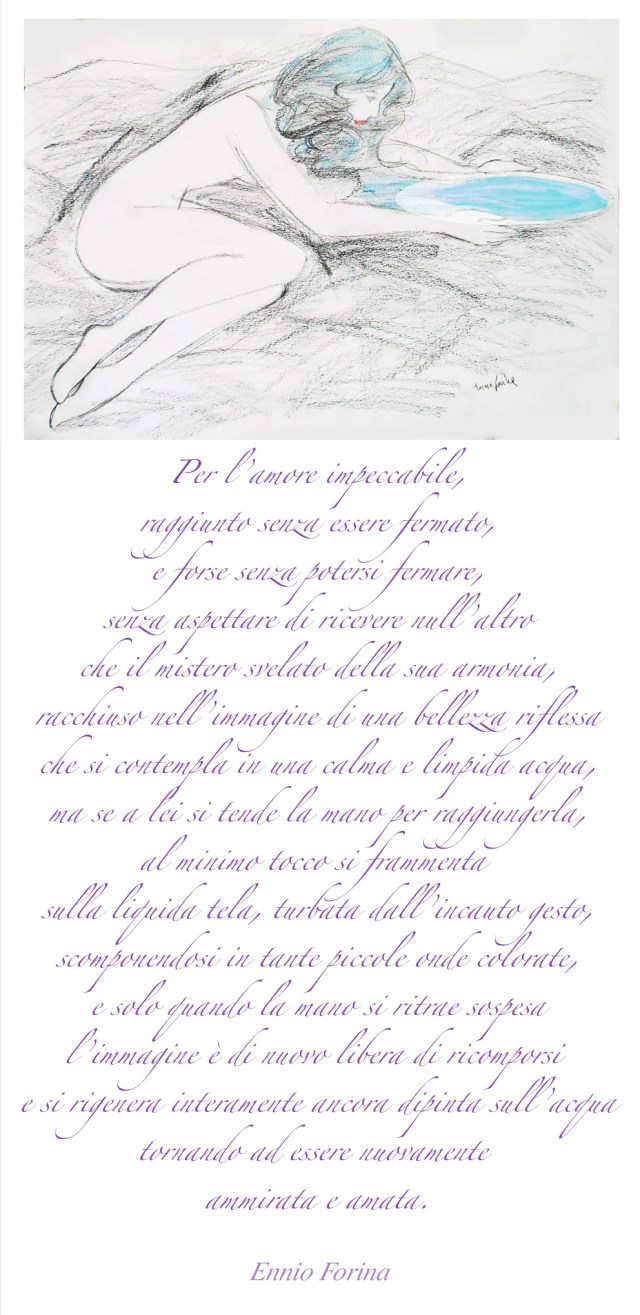 Ennio Forina
Per l'amore impeccabile,
raggiunto senza essere fermato,
e forse senza potersi fermare,
senza aspettare di ricevere null'altro
che il mistero svelato della sua armonia,
racchiuso nell'immagine di una bellezza riflessa
che si contempla in una calma e limpida acqua,
ma se a lei si tende la mano per raggiungerla,
al minimo tocco si frammenta
sulla liquida tela, turbata dall'incauto gesto,
scomponendosi in tante piccole onde colorate,
e solo quando la mano si ritrae sospesa
l'immagine è di nuovo libera di ricomporsi
e si rigenera interamente ancora dipinta sull'acqua
tornando ad essere nuovamente
ammirata e amata.
Ennio Forina